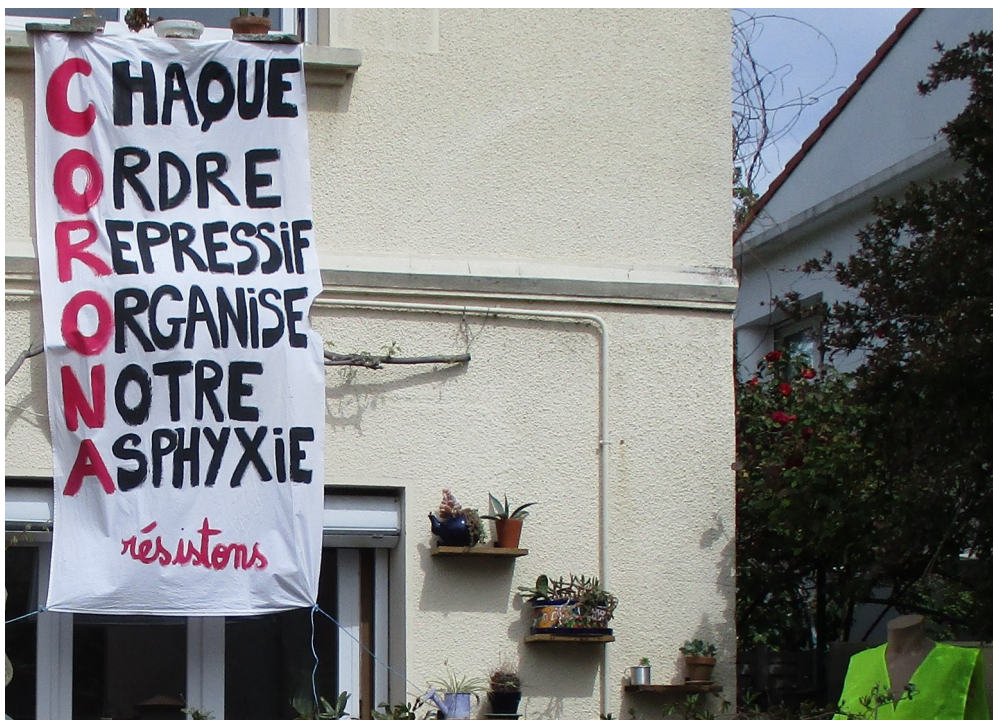 CHAQUE
ORDRE
REPRESSiF
ORGANiSE
NOTRE
ASPHYXiE
résistons